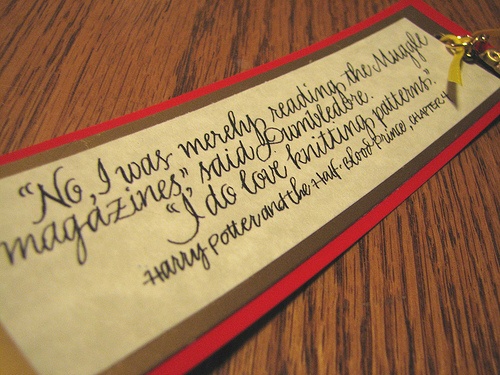 "No, I was merely reading the Muggle
magazines," said Dumbledore.
"I do love knitting patterns."
Harry Potter and the Half-Blood Prince, Chapter 4